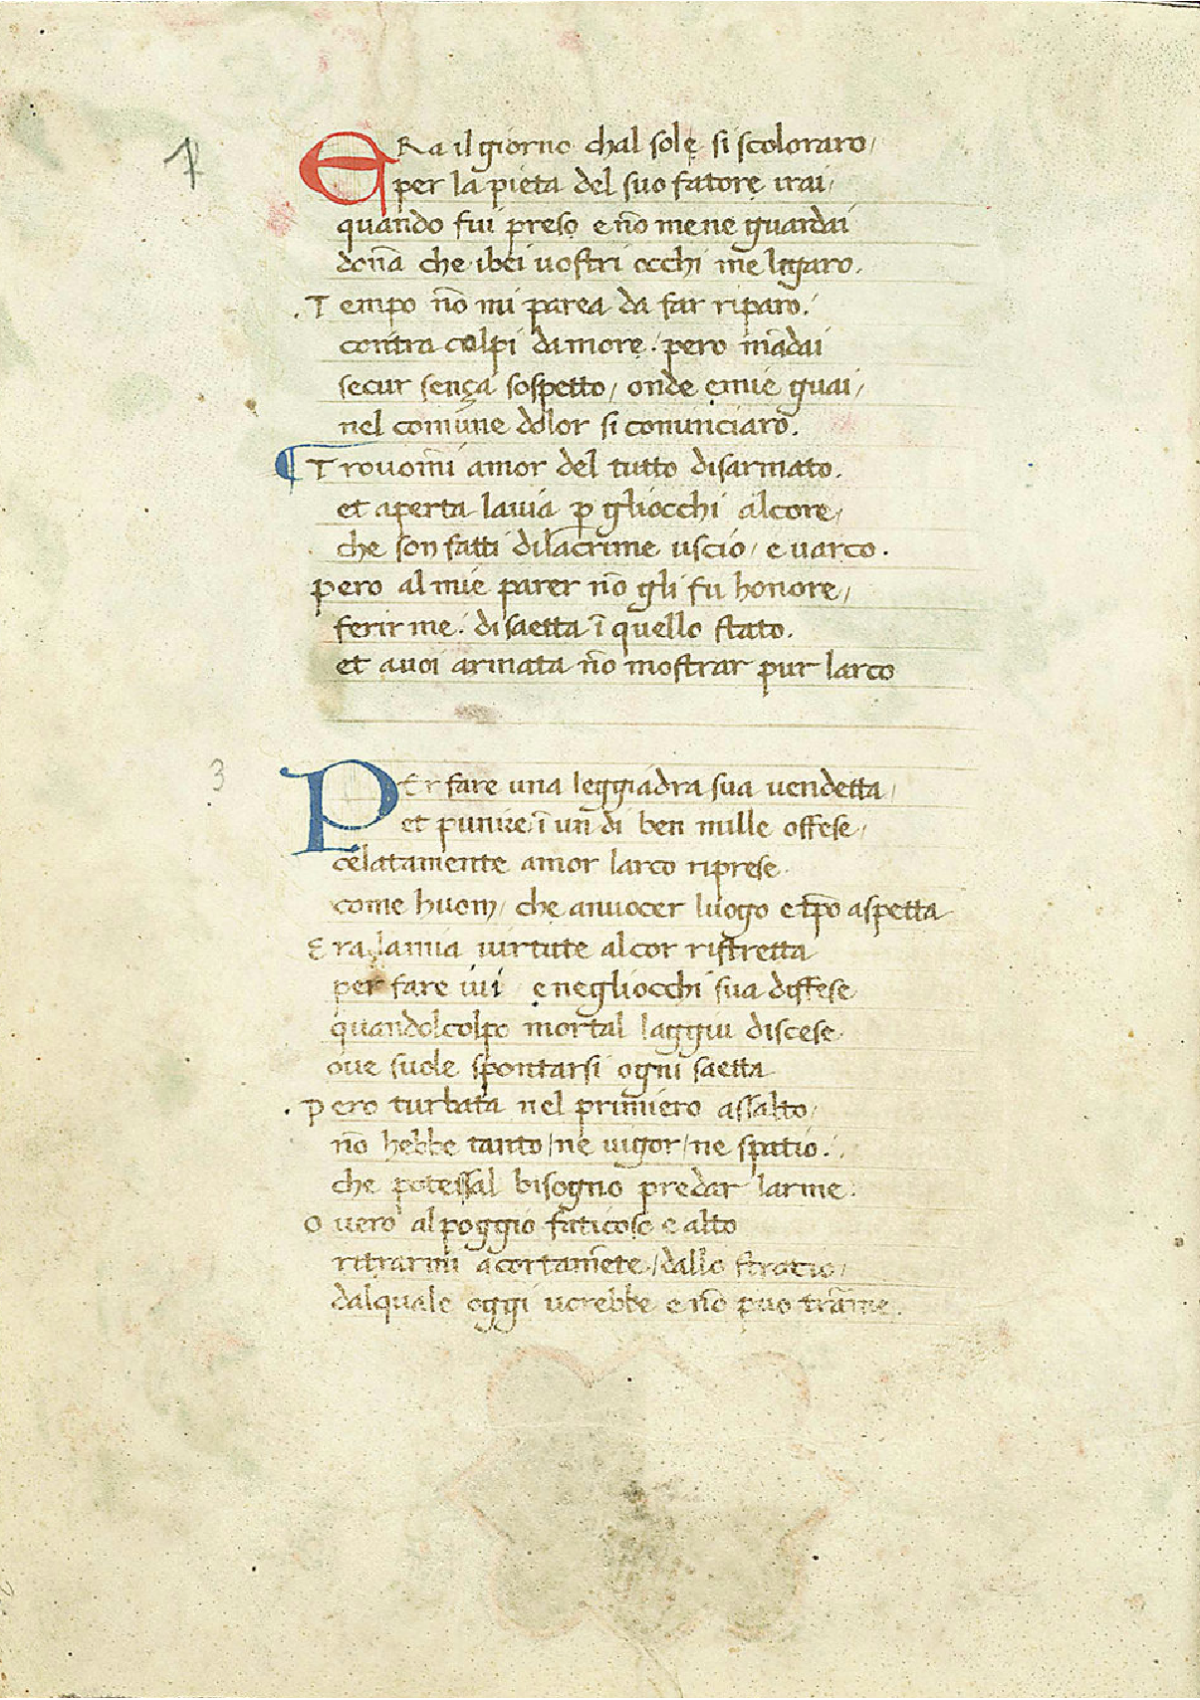 ERa il giorno chal sole si scoloraro/
per la pieta del suo fatore irai/
quando fui preso e nō mene guardai
donā che ibei uostri occhi me legaro.
.Tempo nō mi parea da far riparo.
contra colpi damore. pero mādai
secur sença sospetto/ onde emie guai/
nel comūne dolor si comīnciaro.
¶ Trouomī amor del tutto disarmato.
et aperta lauia ꝑ gliocchi alcore/
che son fatti dilacrime uscio/ e uarco.
Pero al mie parer nō gli fu honore/
ferir me. di saetta ī quello stato.
et auoi armata nō mostrar pur larco
3
PEr fare una leggiadra sua uendetta/
et punire ī un di ben mille offese/
celatamente amor larco riprese.
come huom/ che anuocer luogo e tꝑo aspetta
Era lamia uirtute alcor ristretta
per fare iui e negliocchi sua diffese
quandolcolpo mortal laggiu discese.
oue suole spontarsi ogni saetta
.Pero turbata nel primiero assalto/
nō hebbe tanto/ ne uigor/ ne spatio.
che potessal bisogno predar larme.
Ouero al poggio faticoso e alto
ritrarmi acortamēte/ dallo stratio/
dalquale oggi uorebbe e nō puo trāme.